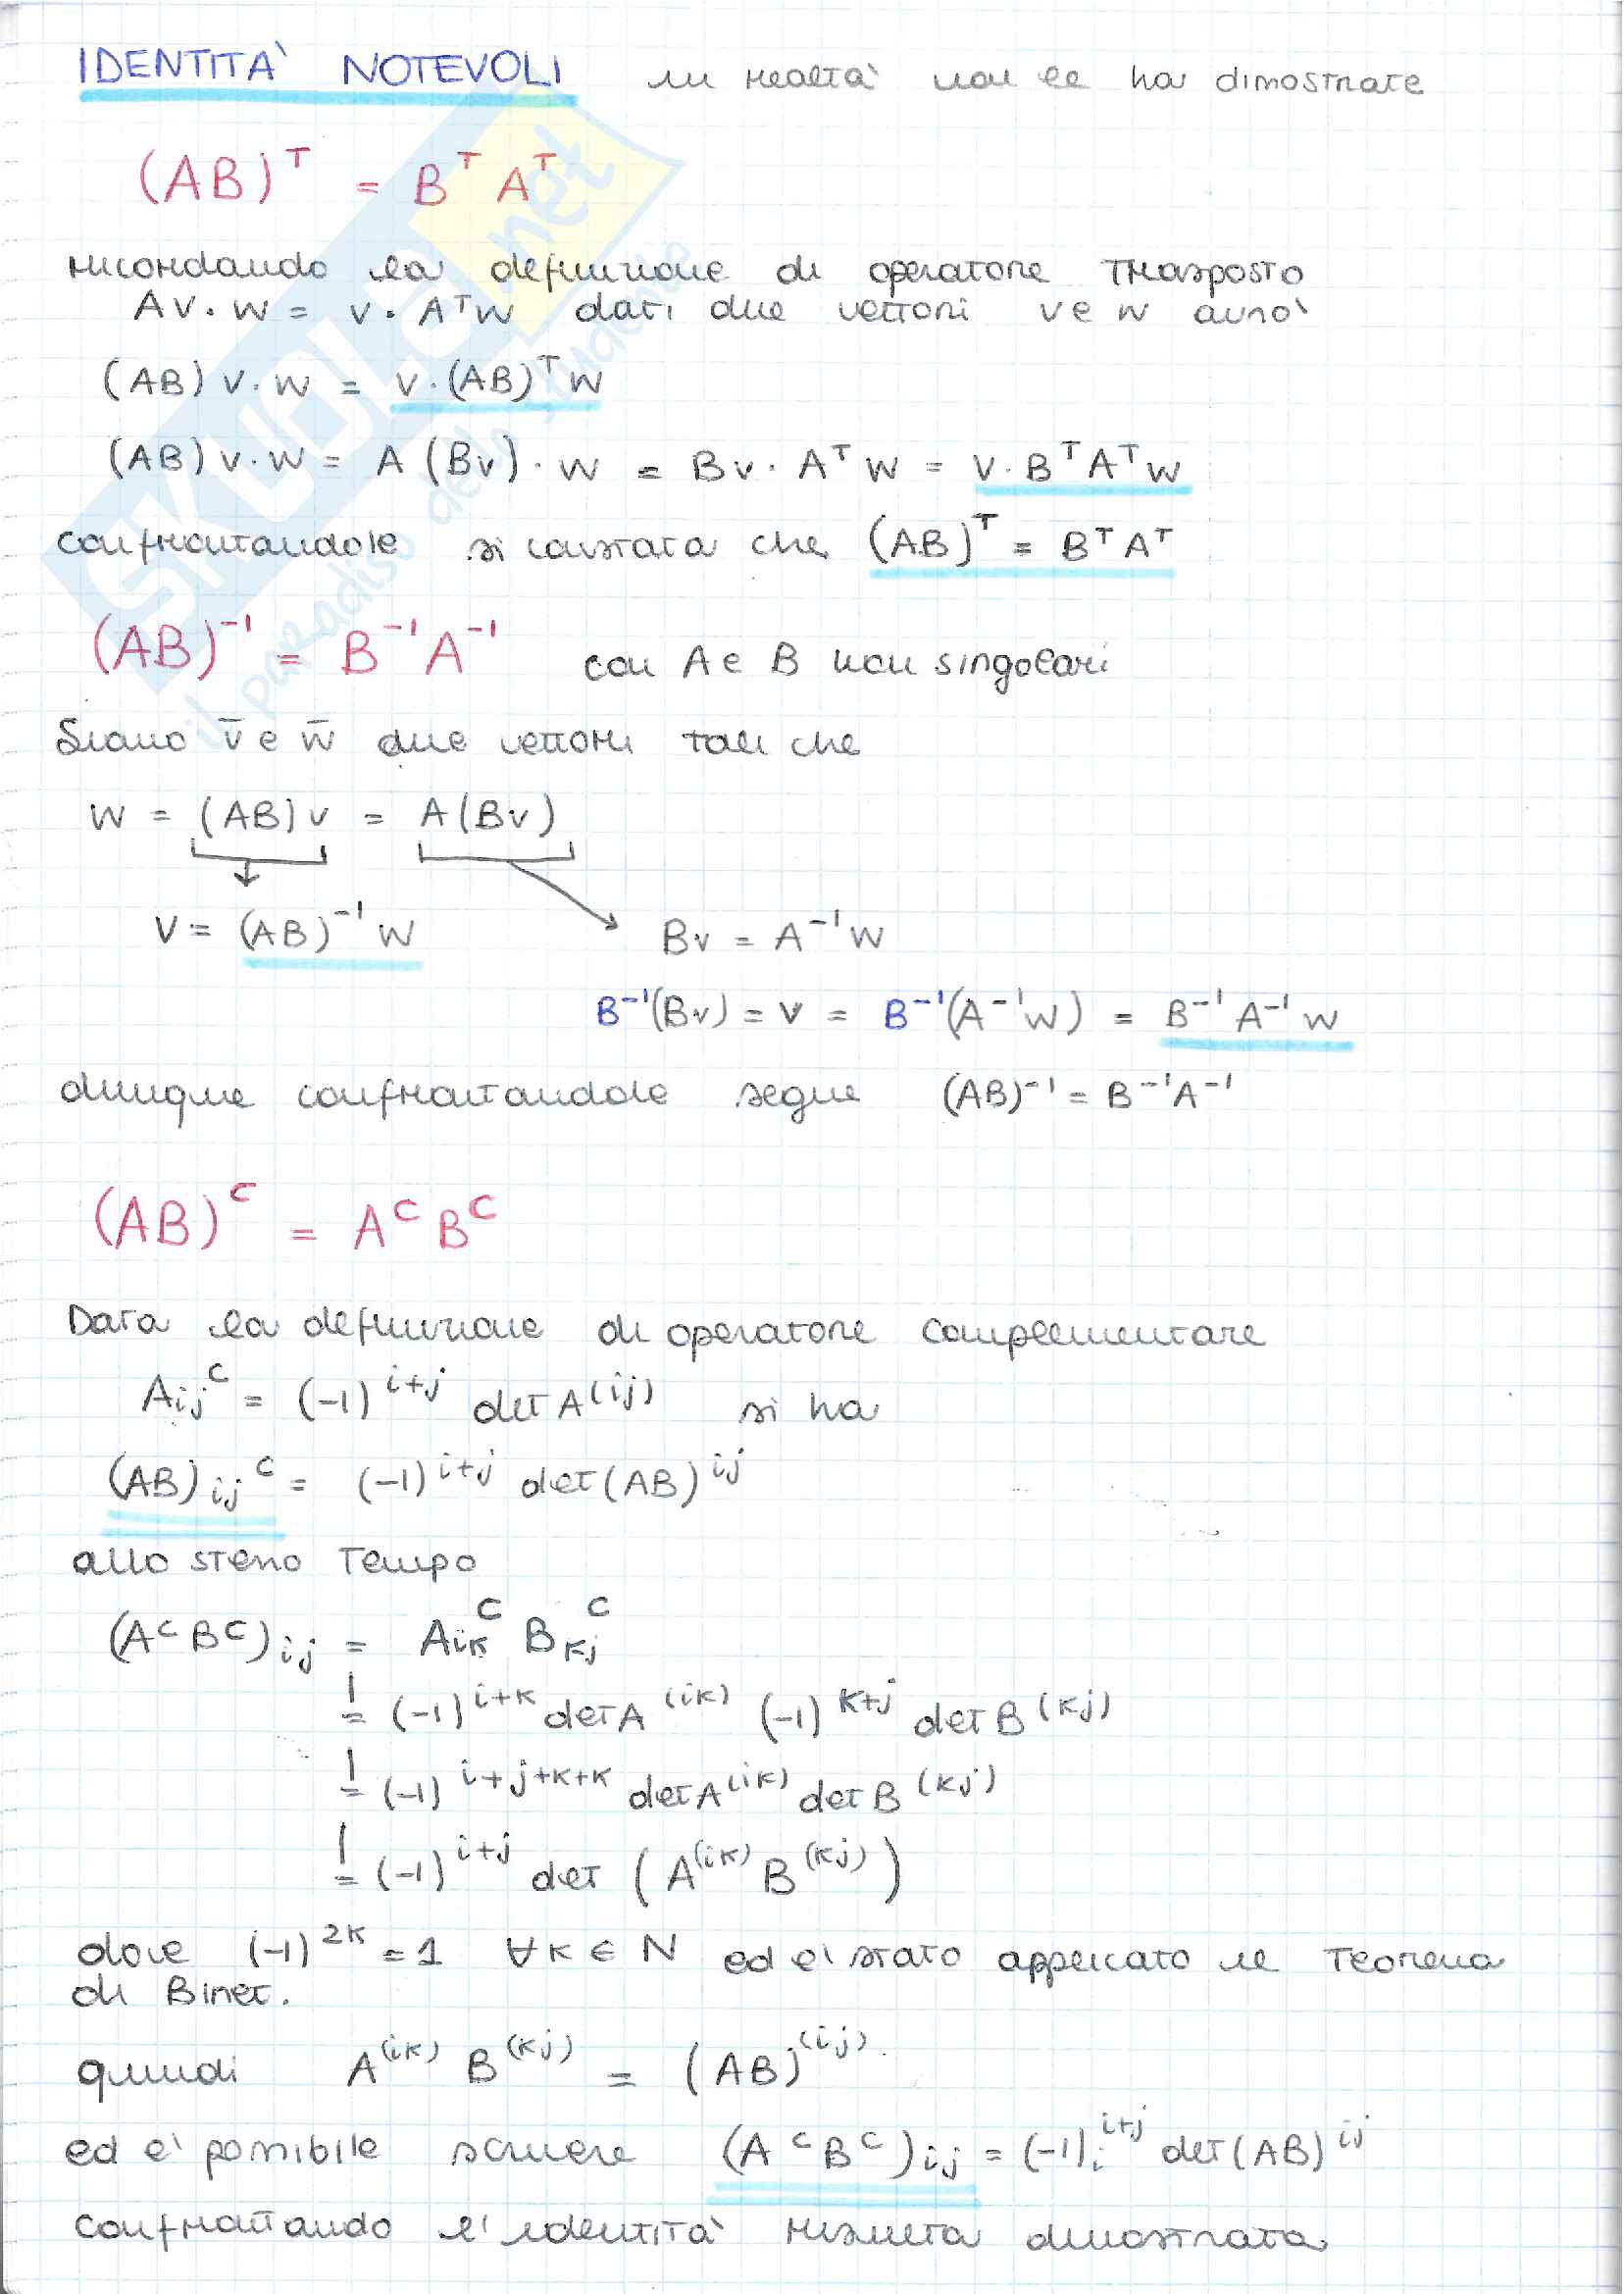 IDENTITA' NOTEVOLI in realtà non le ha dimostrate
(AB)ᵀ = Bᵀ Aᵀ
ricordando la definizione di operatore trasposto
Av · w = v · Aᵀw dati due vettori v e w avrò
(AB) v · w = v · (AB)ᵀ w
(AB) v · w = A (Bv) · w = Bv · Aᵀ w = v · Bᵀ Aᵀ w
confrontandole si constata che (AB)ᵀ = Bᵀ Aᵀ
(AB)⁻¹ = B⁻¹ A⁻¹ con A e B non singolari
Siano v̄ e w̄ due vettori tali che
w = (AB) v = A (Bv)
v = (AB)⁻¹ w Bv = A⁻¹ w
B⁻¹(Bv) = v = B⁻¹(A⁻¹w) = B⁻¹ A⁻¹ w
dunque confrontandole segue (AB)⁻¹ = B⁻¹ A⁻¹
(AB)^C = A^C B^C
Data la definizione di operatore complementare
A_ij^C = (-1)^{i+j} det A^(ij) si ha
(AB)_ij^C = (-1)^{i+j} det (AB)^{ij}
allo stesso tempo
(A^C B^C)_ij = A_ik^C B_kj^C
= (-1)^{i+k} det A^(ik) (-1)^{k+j} det B^(kj)
= (-1)^{i+j+k+k} det A^(ik) det B^(kj)
= (-1)^{i+j} det (A^(ik) B^(kj))
dove (-1)^{2k} = 1 ∀ k ∈ N ed è stato applicato il teorema
di Binet.
quindi A^(ik) B^(kj) = (AB)^(ij).
ed è possibile scrivere (A^C B^C)_ij = (-1)^{i+j} det (AB)^{ij}
confrontando l'identità risulta dimostrata
SKUOLA.net
il paradiso dello studente